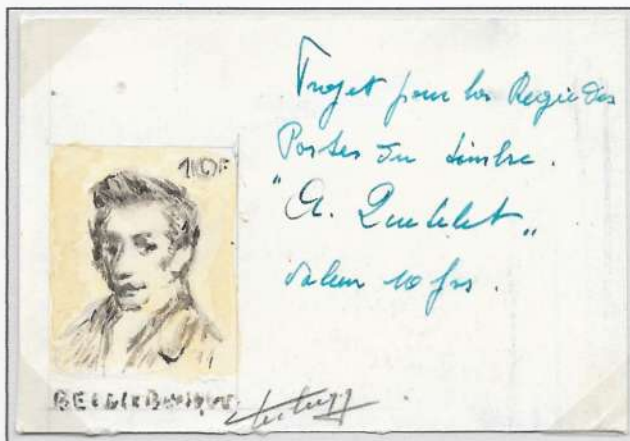 Projet pour la Régie des
Postes du timbre.
"A. Quetelet"
Valeur 10 frs.
10F